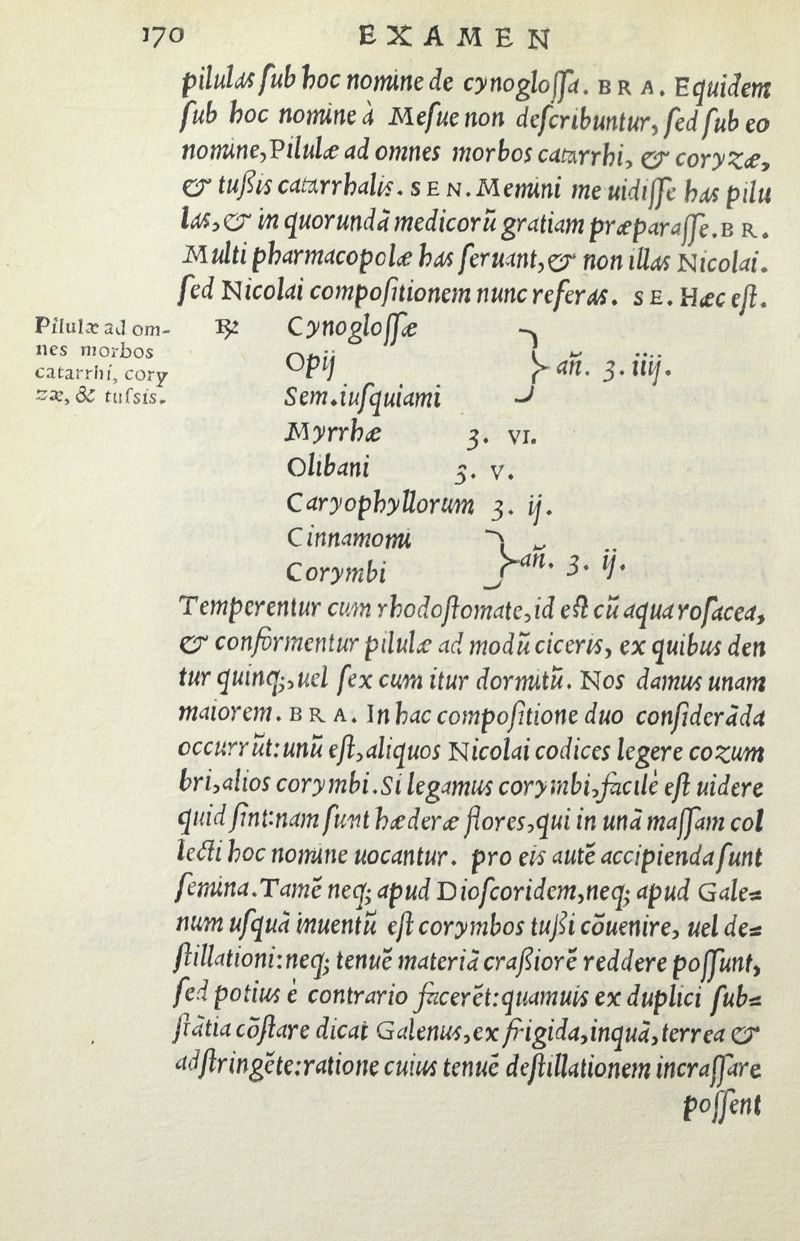 170 EXAMEN
pilulas ſub hoc nomine de cynogloſſa. BRA. Equidem
ſub hoc nomine à Meſue non deſcribuntur, ſed ſub eo
nomine, Pilulæ ad omnes morbos catarrhi, & coryzæ,
& tußis catarrhalis. SEN. Memini me uidiſſe has pilu
las, & in quorundā medicorū gratiam præparaſſe. BR.
Multi pharmacopolæ has ſeruant, & non illas Nicolai.
ſed Nicolai compoſitionem nunc referas. SE. Hæc eſt.
Pilulæ ad om-
nes morbos
catarrhi, cory
zæ, & tuſsis.
℞ Cynogloſſæ
Opij } añ. ʒ. iiij.
Sem. iuſquiami
Myrrhæ ʒ. VI.
Olibani ʒ. V.
Caryophyllorum ʒ. ij.
Cinnamomi
Corymbi } añ. ʒ. ij.
Temperentur cum rhodoſtomate, id eſt cū aqua roſacea,
& conformentur pilulæ ad modū ciceris, ex quibus den
tur quinq;, uel ſex cum itur dormitū. Nos damus unam
maiorem. BRA. In hac compoſitione duo conſiderāda
occurrūt: unū eſt, aliquos Nicolai codices legere cozum
bri, alios corymbi. Si legamus corymbi, facile eſt uidere
quid ſint: nam ſunt hæderæ flores, qui in unā maſſam col
lecti hoc nomine uocantur. pro eis autē accipienda ſunt
ſemina. Tamē neq; apud Dioſcoridem, neq; apud Gale⸗
num uſquā inuentū eſt corymbos tußi cōuenire, uel de⸗
ſtillationi: neq; tenuē materiā craßiorē reddere poſſunt,
ſed potius è contrario facerēt: quamuis ex duplici ſub⸗
ſtātia cōſtare dicat Galenus, ex frigida, inquā, terrea &
adſtringēte: ratione cuius tenuē deſtillationem incraſſare
poſſent